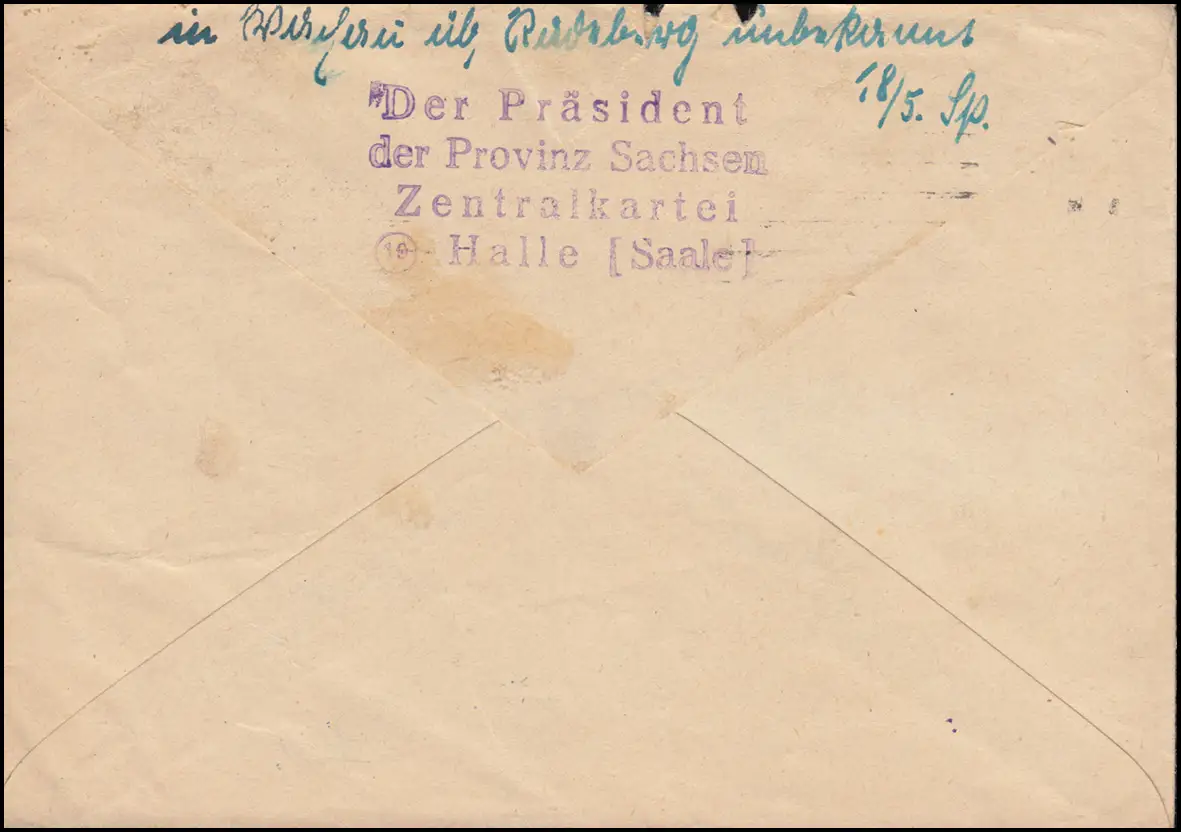 in Wachau üb, Radeberg unbekannt
18/5. Sp.
Der Präsident
der Provinz Sachsen
Zentralkartei
(19) Halle [Saale]